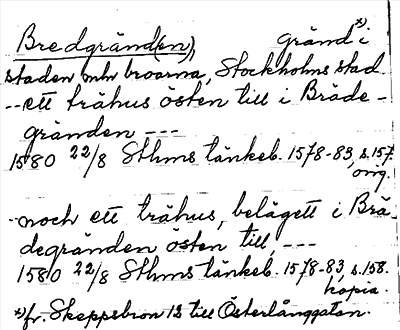 Bredgränd(en), gränd *) i
staden mln broarna, Stockholms stad
-- ett trähus östen till i Bräde-
gränden ---
1580 22/8 Sthms tänkeb. 1578-83, s. 157.
orig.
-- noch ett trähus, belägett i Brä-
degränden östen till, ---
1580 22/8 Sthms tänkeb. 1578-83, s. 158.
kopia.
*) fr. Skeppsbron 12 till Österlånggatan.